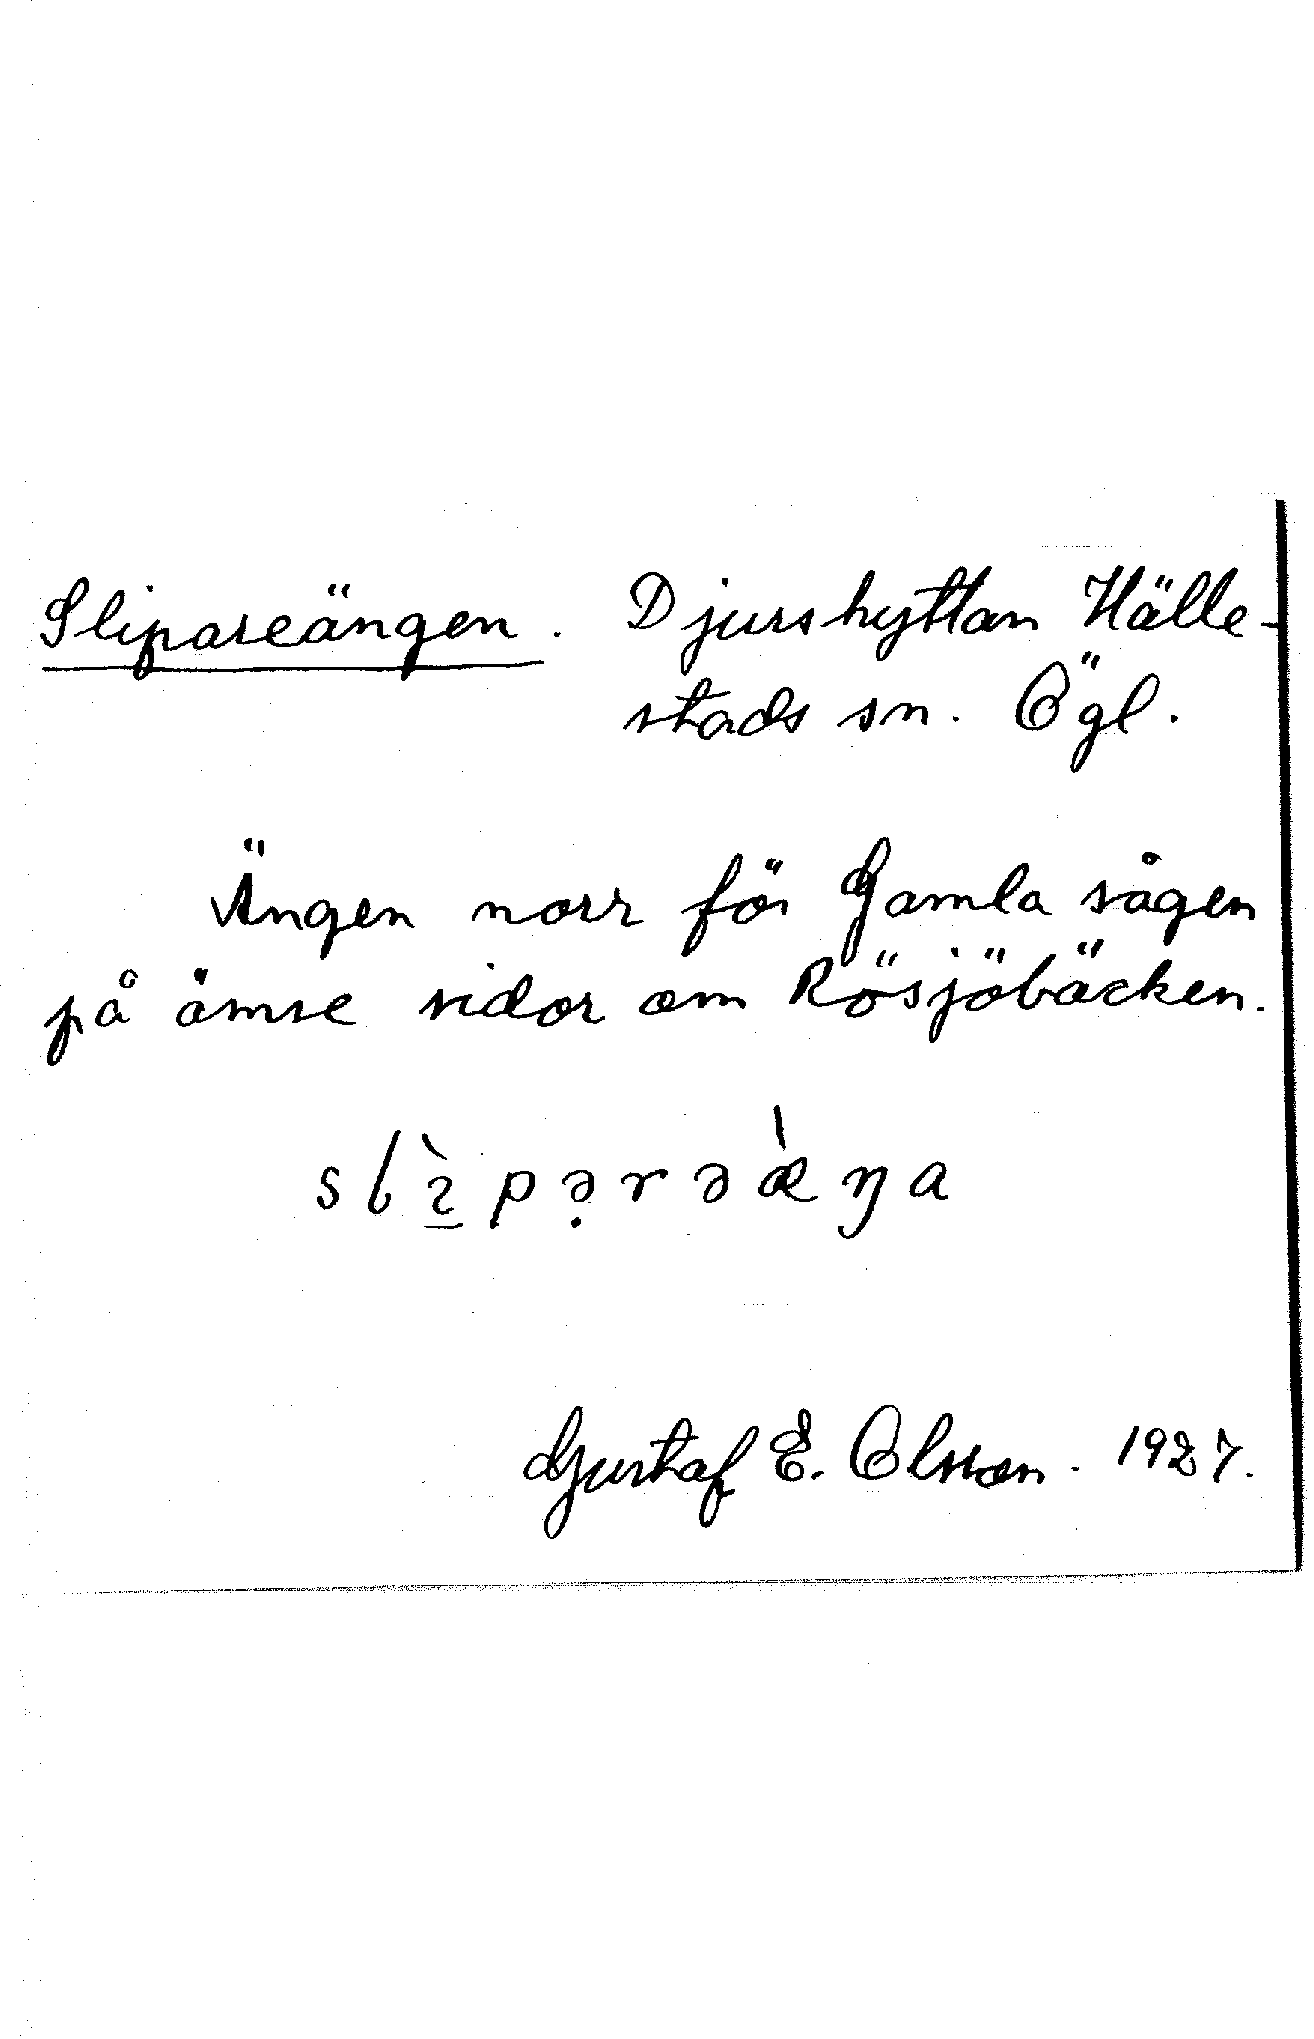 Slipareängen. Djurshyttan Hälle-
stads sn. Ögl.
Ängen norr för Gamla sågen
på ömse sidor om Rösjöbäcken.
slı̱̀pə̣rəæ̀ŋa
Gustaf E. Olsson. 1927.